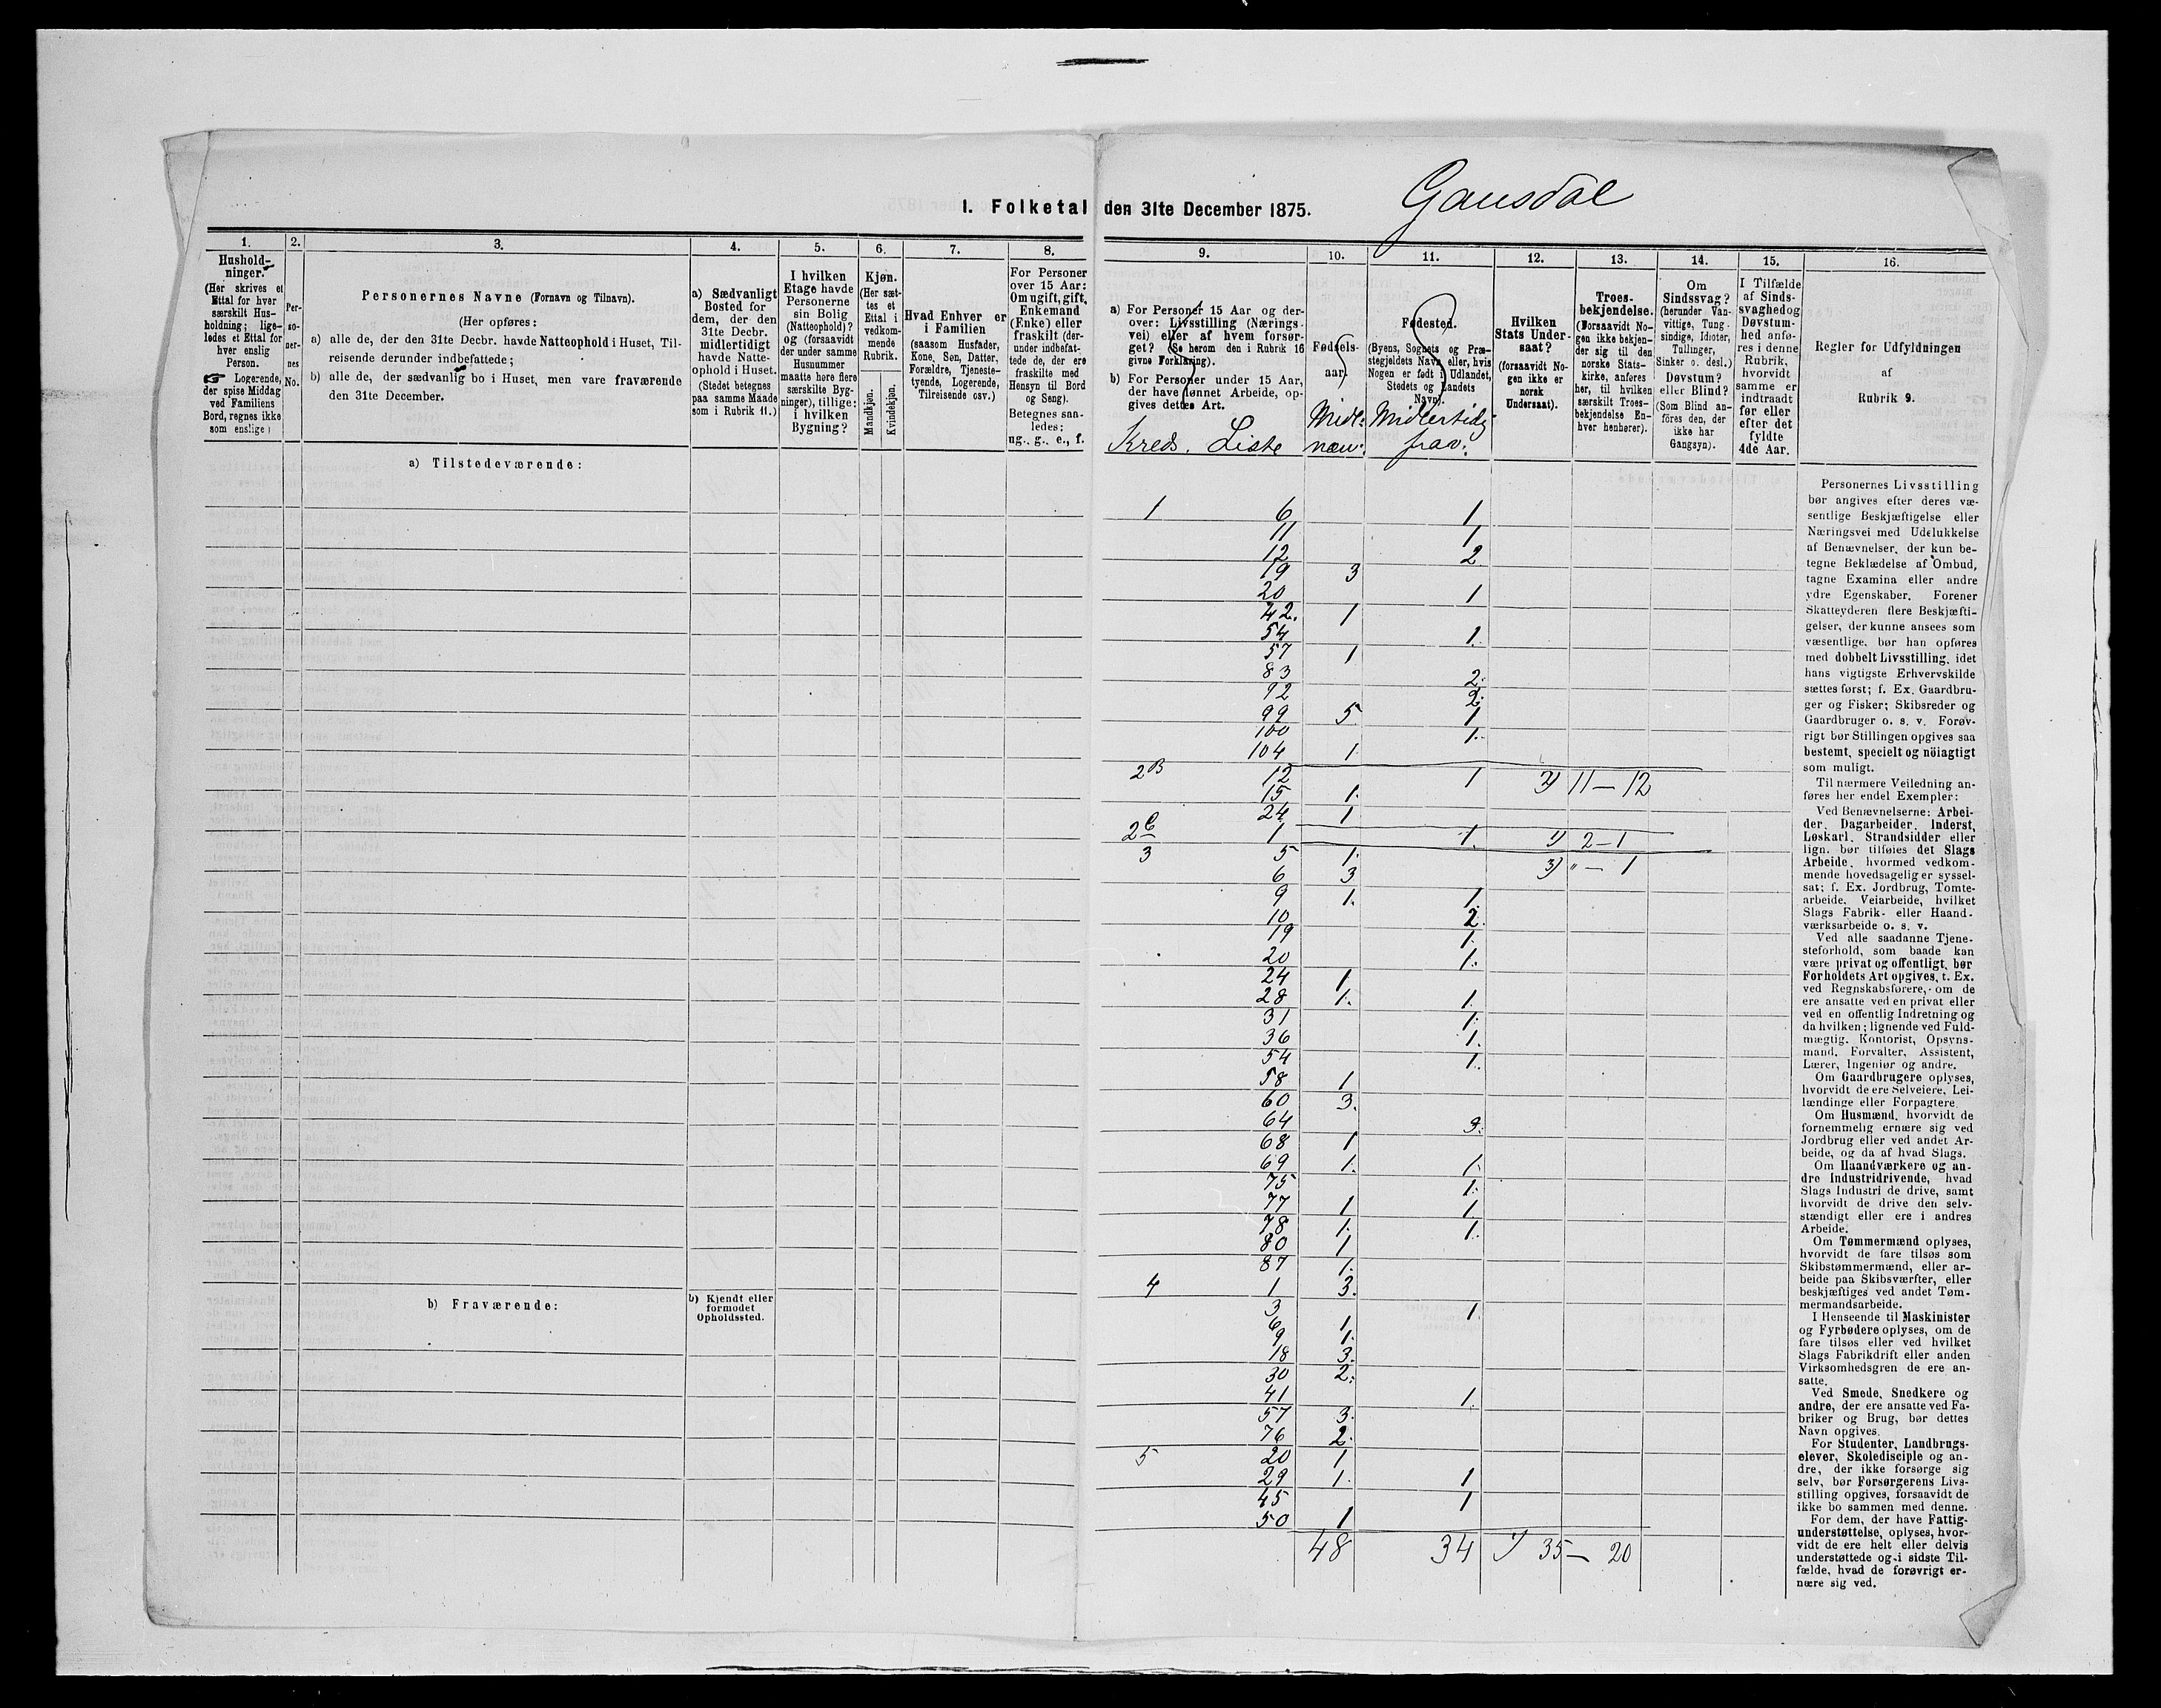 Gausdal
I. Folketal den 31te December 1875.
1.
Hushold-
ninger.
(Her skrives et
Ettal for hver
særskilt Hus-
holdning; lige-
ledes et Ettal for
hver enslig
Person.
☞ Logerende,
der spise Middag
ved Familiens
Bord, regnes ikke
som enslige)
2.
Per-
so-
ner-
nes
No.
3.
Personernes Navne (Fornavn og Tilnavn).
(Her opføres:
a) alle de, der den 31te Decbr. havde Natteophold i Huset, Til-
reisende derunder indbefattede;
b) alle de, der sædvanlig bo i Huset, men vare fraværende
den 31te December.
4.
a) Sædvanligt
Bosted for
dem, der den
31te Decbr.
midlertidigt
havde Natte-
ophold i Huset.
(Stedet betegnes
paa samme Maade
som i Rubrik 11.)
5.
I hvilken
Etage havde
Personerne
sin Bolig
(Natteophold)?
og (forsaavidt
der under samme
Husnummer
maatte høre flere
særskilte Byg-
ninger), tillige:
i hvilken
Bygning?
6.
Kjøn.
(Her sæt-
tes et
Ettal i
vedkom-
mende
Rubrik.
Mandkjøn.
Kvindekjøn.
7.
Hvad Enhver er
i Familien
(saasom Husfader,
Kone, Søn, Datter,
Forældre, Tjeneste-
tyende, Logerende,
Tilreisende osv.)
8.
For Personer
over 15 Aar:
Om ugift, gift,
Enkemand
(Enke) eller
fraskilt (der-
under indbefat-
tede de, der ere
fraskilte med
Hensyn til Bord
og Seng).
Betegnes saa-
ledes:
ug., g., e., f.
9.
a) For Personer 15 Aar og der-
over: Livsstilling (Nærings-
vei) eller af hvem forsør-
get? (Se herom den i Rubrik 16
givne Forklaring).
b) For Personer under 15 Aar,
der have lønnet Arbeide, op-
gives dettes Art.
Kreds. Liste
10.
Fødsels-
aar.
Midl:
nærv:
11.
Fødested.
(Byens, Sognets og Præ-
stegjeldets Navn, eller, hvis
Nogen er født i Udlandet,
Stedets og Landets
Navn).
Midlertidg
frav:
12.
Hvilken
Stats Under-
saat?
(forsaavidt No-
gen ikke er
norsk
Undersaat).
13.
Troes-
bekjendelse.
(Forsaavidt No-
gen ikke bekjen-
der sig til den
norske Stats-
kirke, anføres
her, til hvilken
særskilt Troes-
bekjendelse En-
hver henhører).
14.
Om
Sindssvag?
(herunder Van-
vittige, Tung-
sindige, Idioter,
Tullinger,
Sinker o. desl.)
Døvstum?
eller Blind?
(Som Blind an-
føres den, der
ikke har
Gangsyn).
15.
I Tilfælde
af Sinds-
svaghed og
Døvstum-
hed anfø-
res i denne
Rubrik,
hvorvidt
samme er
indtraadt
før eller
efter det
fyldte
4de Aar.
16.
Regler for Udfyldningen
af
Rubrik 9.
a) Tilstedeværende:
1 6 1
11 1
12 2
19 3
20 1
42. 1
54 1.
57 1
83 2.
92 2.
99 5 1
100 1.
104 1.
2B 12 1 2) 11 — 12
15 1.
24 1
2C 1 1. 1) 2 — 1
3 5 1. 3) " — 1
6 3
9 1. 1.
10 2.
19 1.
20 1.
24 1
28 1. 1.
31 1.
36 1.
54 1.
58 1
60 3.
64 3.
68 1
69 1. 1.
75 1.
77 1 1.
78 1. 1.
80 1
87 1.
4 1 3.
3 1.
6 1
9 1.
18 3.
30 2.
41 1.
57 3.
76 2.
5 20 1
29 1. 1
45 1
50 1
48 34 35 — 20
b) Fraværende:
b) Kjendt eller
formodet
Opholdssted.
Personernes Livsstilling
bør angives efter deres væ-
sentlige Beskjæftigelse eller
Næringsvei med Udelukkelse
af Benævnelser, der kun be-
tegne Beklædelse af Ombud,
tagne Examina eller andre
ydre Egenskaber. Forener
Skatteyderen flere Beskjæfti-
gelser, der kunne ansees som
væsentlige, bør han opføres
med dobbelt Livsstilling, idet
hans vigtigste Erhvervskilde
sættes først; f. Ex. Gaardbru-
ger og Fisker; Skibsreder og
Gaardbruger o. s. v. Forøv-
rigt bør Stillingen opgives saa
bestemt, specielt og nöiagtigt
som muligt.
Til nærmere Veiledning an-
føres her endel Exempler:
Ved Benævnelserne: Arbei-
der, Dagarbeider, Inderst,
Løskarl, Strandsidder eller
lign. bør tilføies det Slags
Arbeide, hvormed vedkom-
mende hovedsagelig er syssel-
sat; f. Ex. Jordbrug, Tomte-
arbeide, Veiarbeide, hvilket
Slags Fabrik- eller Haand-
værksarbeide o. s. v.
Ved alle saadanne Tjene-
steforhold, som baade kan
være privat og offentligt, bør
Forholdets Art opgives, t. Ex.
ved Regnskabsførere, om de
ere ansatte ved en privat eller
ved en offentlig Indretning og
da hvilken; lignende ved Fuld-
mægtig, Kontorist, Opsyns-
mand, Forvalter, Assistent,
Lærer, Ingeniør og andre.
Om Gaardbrugere oplyses,
hvorvidt de ere Selveiere, Lei-
lændinge eller Forpagtere.
Om Husmænd, hvorvidt de
fornemmelig ernære sig ved
Jordbrug eller ved andet Ar-
beide, og da af hvad Slags.
Om Haandværkere og an-
dre Industridrivende, hvad
Slags Industri de drive, samt
hvorvidt de drive den selv-
stændigt eller ere i andres
Arbeide.
Om Tømmermænd oplyses,
hvorvidt de fare tilsøs som
Skibstømmermænd, eller ar-
beide paa Skibsværfter, eller
beskjæftiges ved andet Tøm-
mermandsarbeide.
I Henseende til Maskinister
og Fyrbødere oplyses, om de
fare tilsøs eller ved hvilket
Slags Fabrikdrift eller anden
Virksomhedsgren de ere an-
satte.
Ved Smede, Snedkere og
andre, der ere ansatte ved Fa-
briker og Brug, bør dettes
Navn opgives.
For Studenter, Landbrugs-
elever, Skoledisciple og an-
dre, der ikke forsørge sig
selv, bør Forsørgerens Livs-
stilling opgives, forsaavidt de
ikke bo sammen med denne.
For dem, der have Fattig-
understøttelse, oplyses, hvor-
vidt de ere helt eller delvis
understøttede og i sidste Til-
fælde, hvad de forøvrigt er-
nære sig ved.